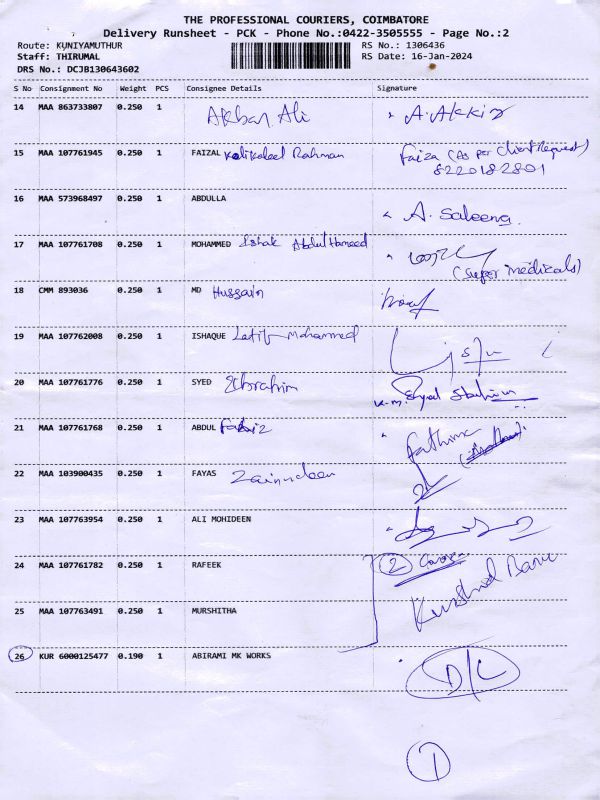 THE PROFESSIONAL COURIERS, COIMBATORE
Delivery Runsheet - PCK - Phone No.:0422-3505555 - Page No.:2
Route: KUNIYAMUTHUR
Staff: THIRUMAL
DRS No.: DCJB130643602
RS No.: 1306436
RS Date: 16-Jan-2024
S No Consignment No Weight PCS Consignee Details Signature
14 MAA 863733807 0.250 1 Akbar Ali
15 MAA 107761945 0.250 1 FAIZAL Kalikaleel Rahman Faiza (As per Client Request)
8220182801
16 MAA 573968497 0.250 1 ABDULLA A. Saleena.
17 MAA 107761708 0.250 1 MOHAMMED Ishak Abdul Hameed
(Super medicals)
18 CMM 893036 0.250 1 MD Hussain
19 MAA 107762008 0.250 1 ISHAQUE Latif Mohammed
20 MAA 107761776 0.250 1 SYED Ibrahim K.M. Syed
21 MAA 107761768 0.250 1 ABDUL Fathima
22 MAA 103900435 0.250 1 FAYAS Zainudeen
23 MAA 107763954 0.250 1 ALI MOHIDEEN
24 MAA 107761782 0.250 1 RAFEEK 2
25 MAA 107763491 0.250 1 MURSHITHA Kurshid Banu
26 KUR 6000125477 0.190 1 ABIRAMI MK WORKS D/L
1